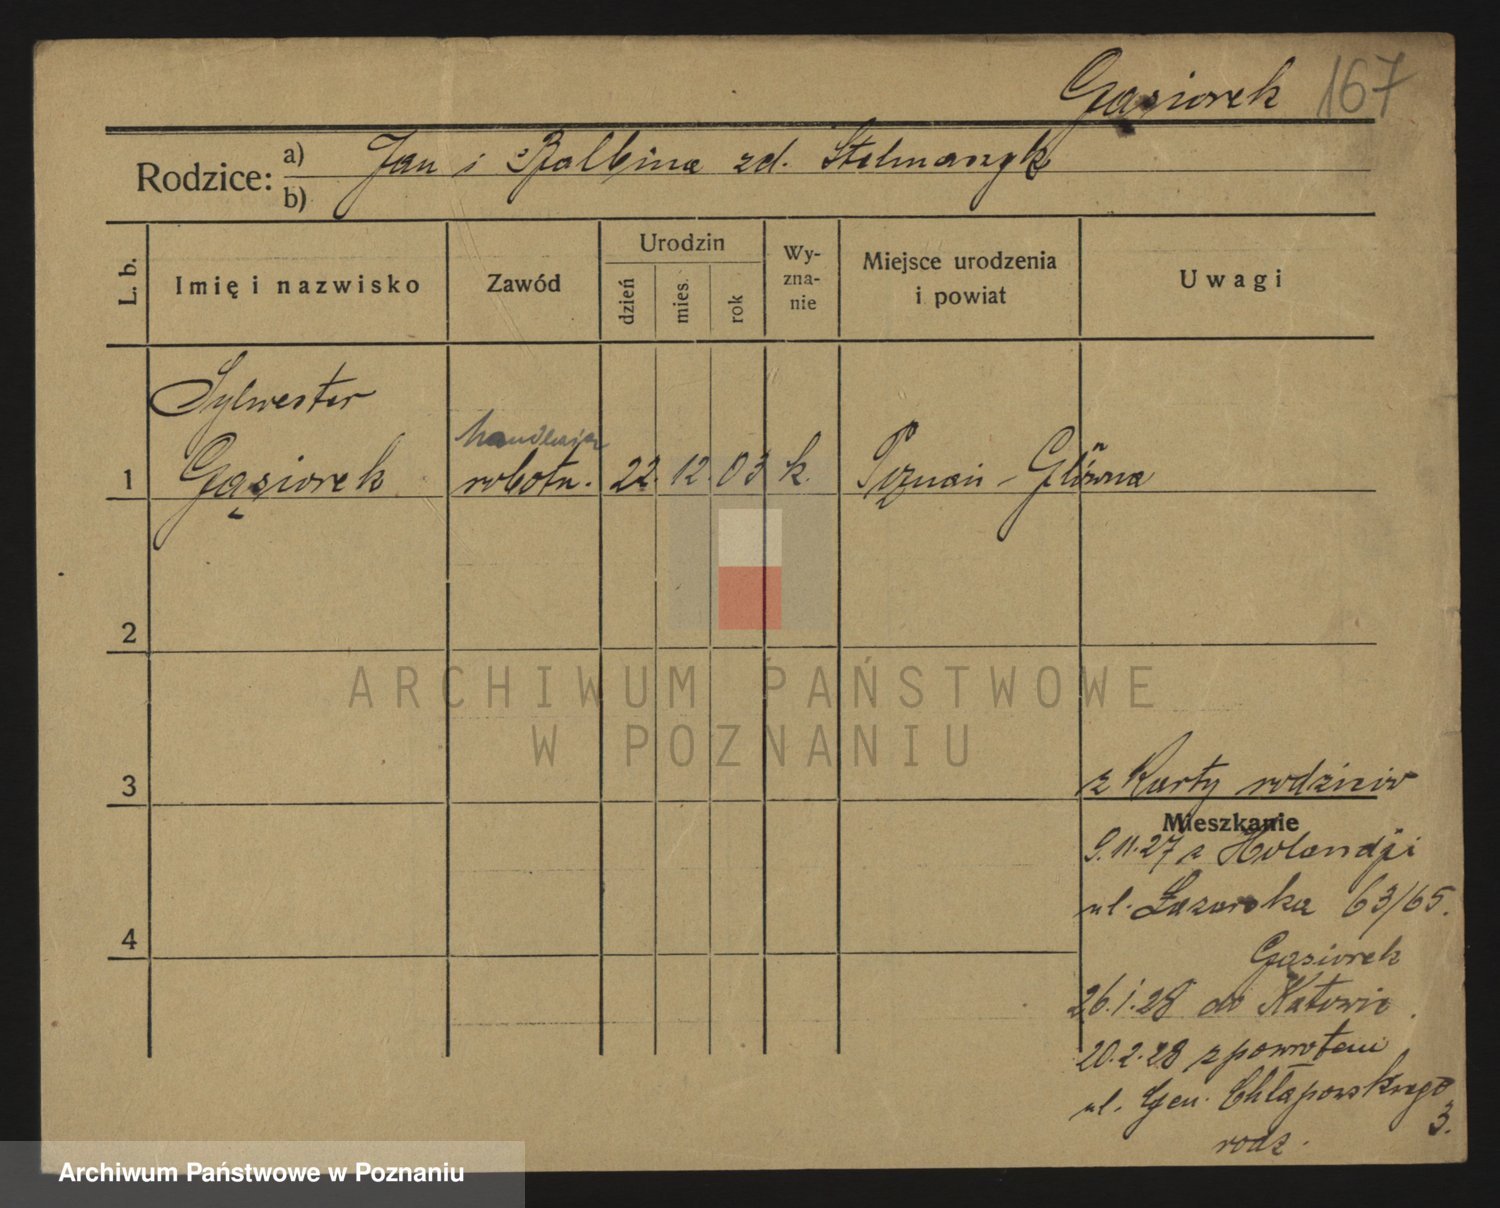 Gąsiorek 167
Rodzice: a) Jan i Balbina zd. Stelmaszyk
b)
L. b.
Imię i nazwisko
Zawód
Urodzin
dzień
mies.
rok
Wy-
zna-
nie
Miejsce urodzenia
i powiat
Uwagi
Sylwester
handlarz
1 Gąsiorek robotn. 22. 12. 03 k. Poznań - Główna
2
ARCHIWUM PAŃSTWOWE
W POZNANIU
3
z Karty rodziców
Mieszkanie
9.11.27 z Holandji
ul. Łazarska 63/65.
4
Gąsiorek
26.1.28 do Katowic.
20.2.28 z powrotem
ul. Gen. Chłapowskiego
3.
rodz.
Archiwum Państwowe w Poznaniu